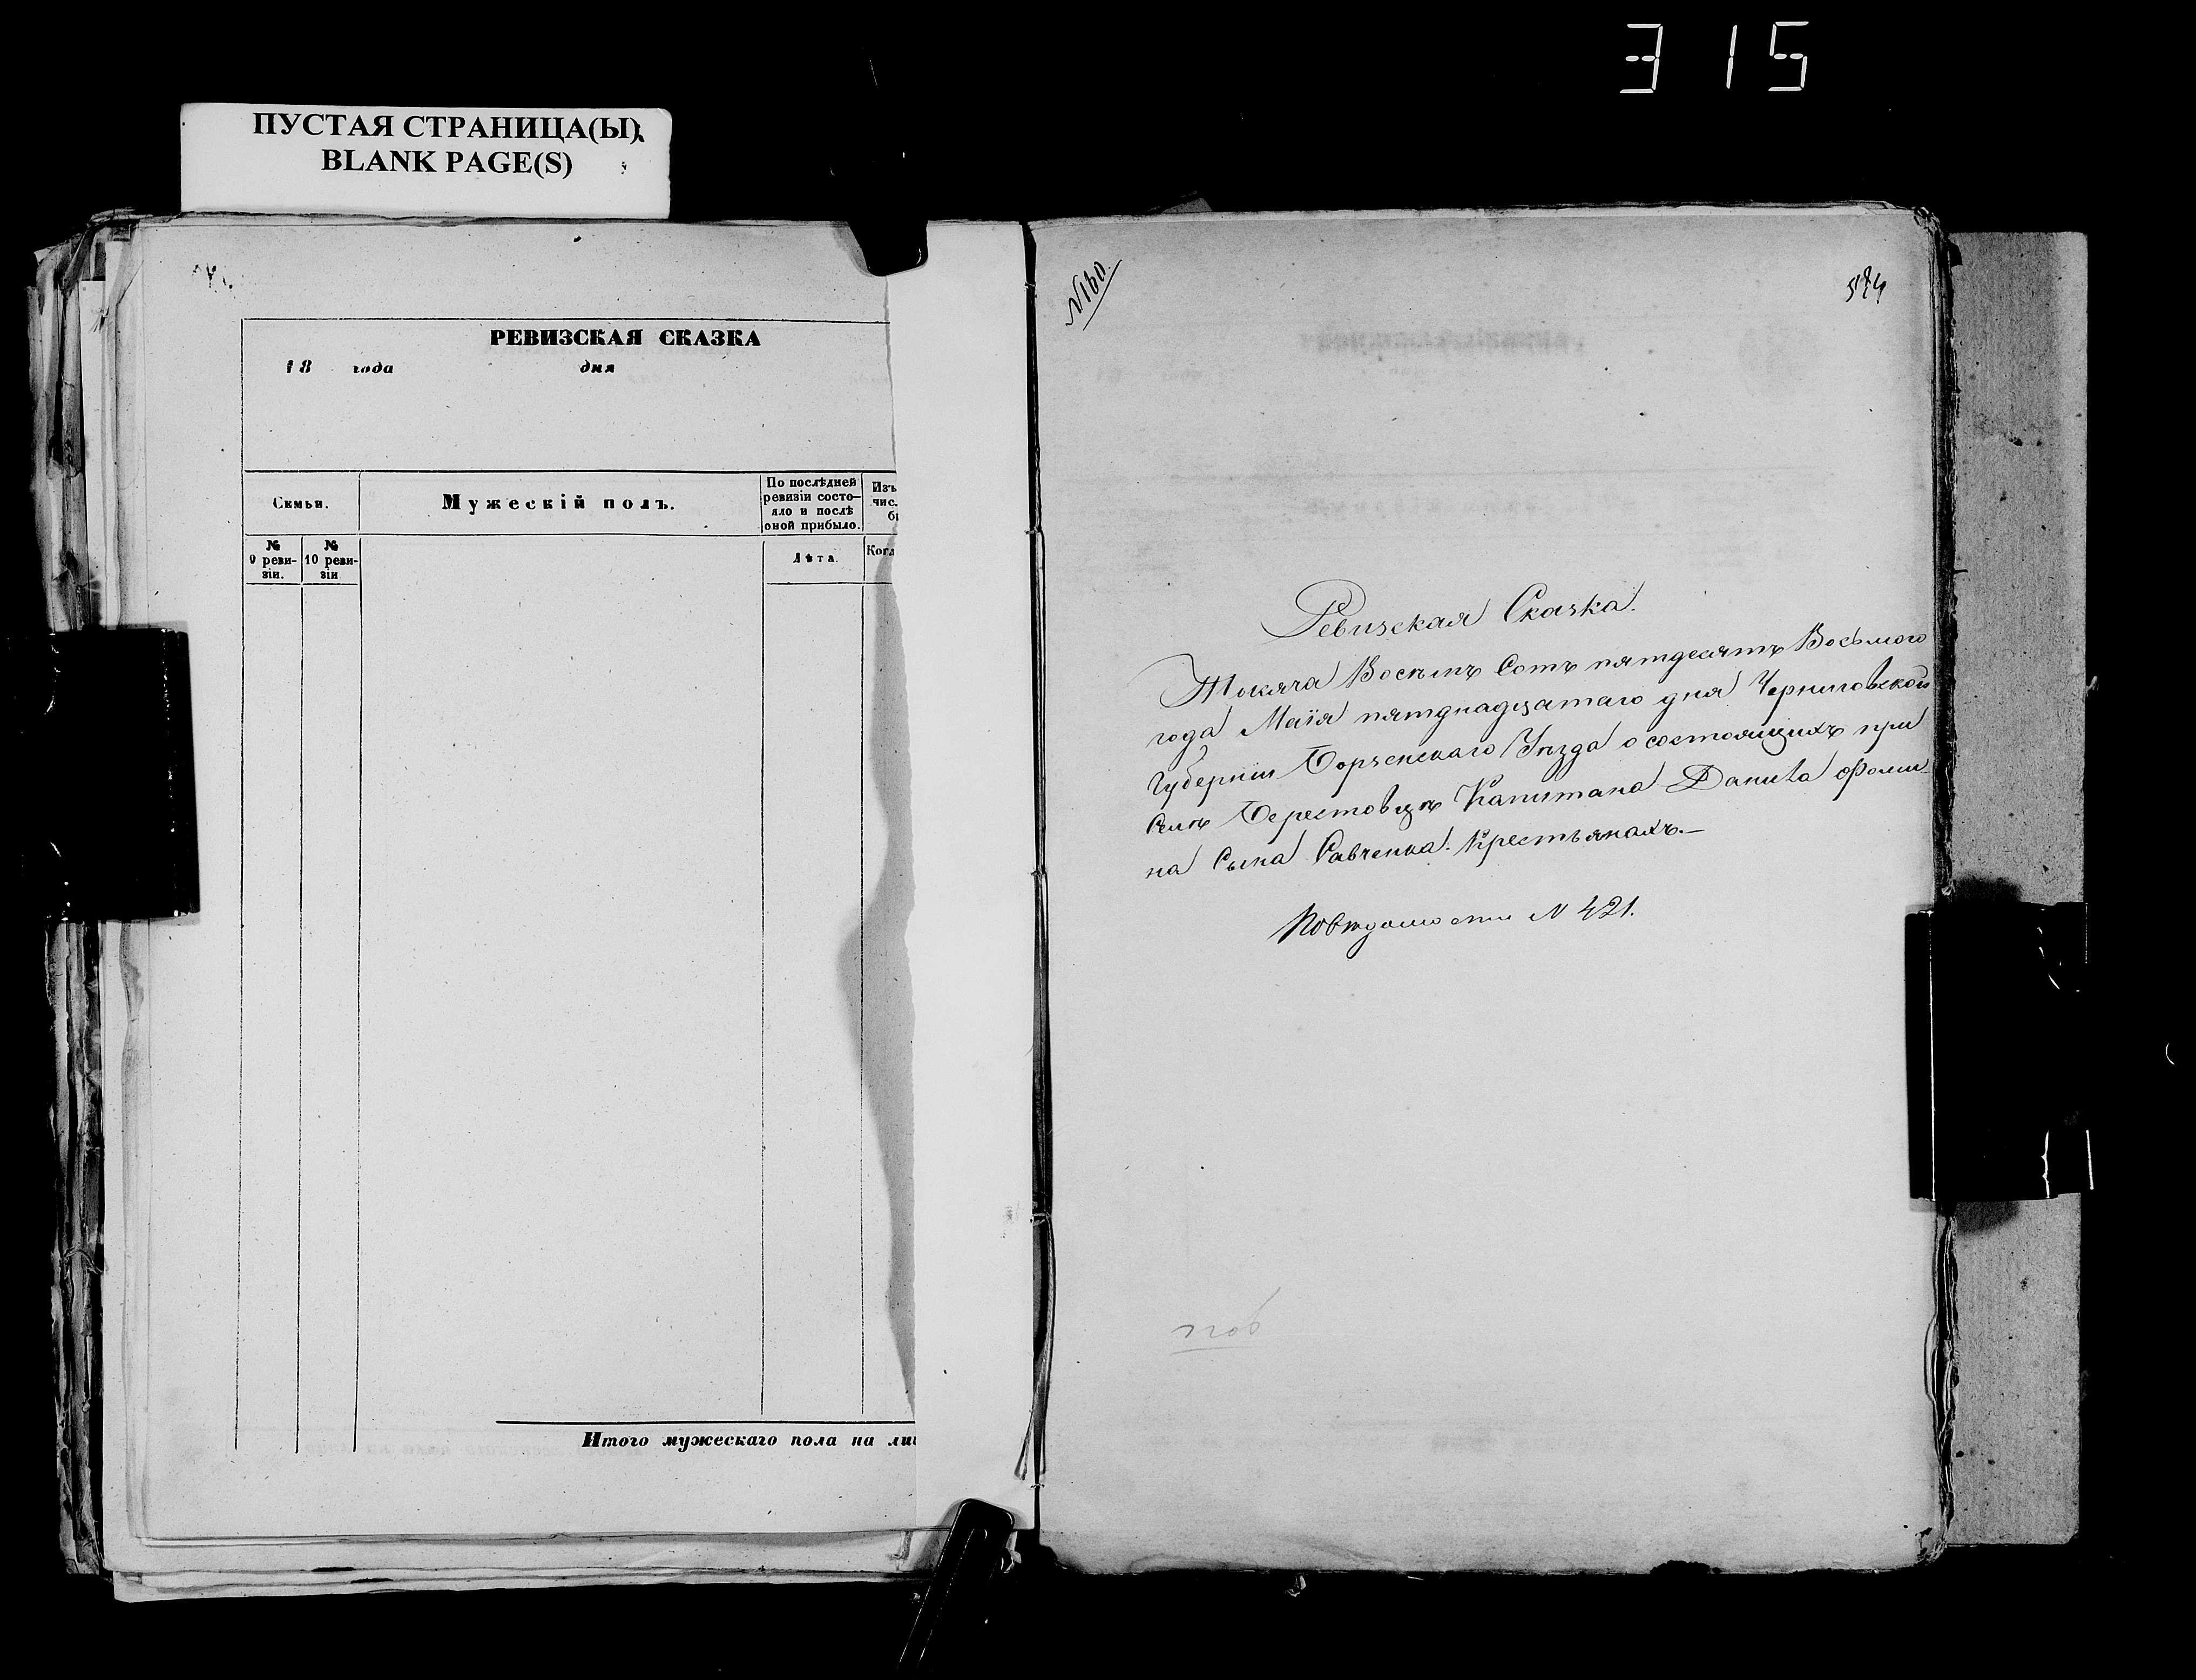 315
ПУСТАЯ СТРАНИЦА(Ы)
BLANK PAGE(S)
РЕВИЗСКАЯ СКАЗКА
18 года дня
Семьи.
Мужескій полъ.
По послѣдней
ревизіи состо-
яло и послѣ
оной прибыло.
Изъ
чис
№
9 реви-
зіи.
№
10 реви-
зіи
Лѣта.
Ког
Итого мужескаго пола на ли
N160
Ревизская Сказка.
Тысяча Восемъ Сотъ пятдесятъ Восьмого
года Маія пятнадцатаго дня Черниговской
Губерніи Борзенскаго Уѣзда о состоящихъ при
Селѣ Берестовцѣ Капитана Данила Фоми-
на Сына Савченка. Крестьянахъ.—
По вѣдомости N 421.